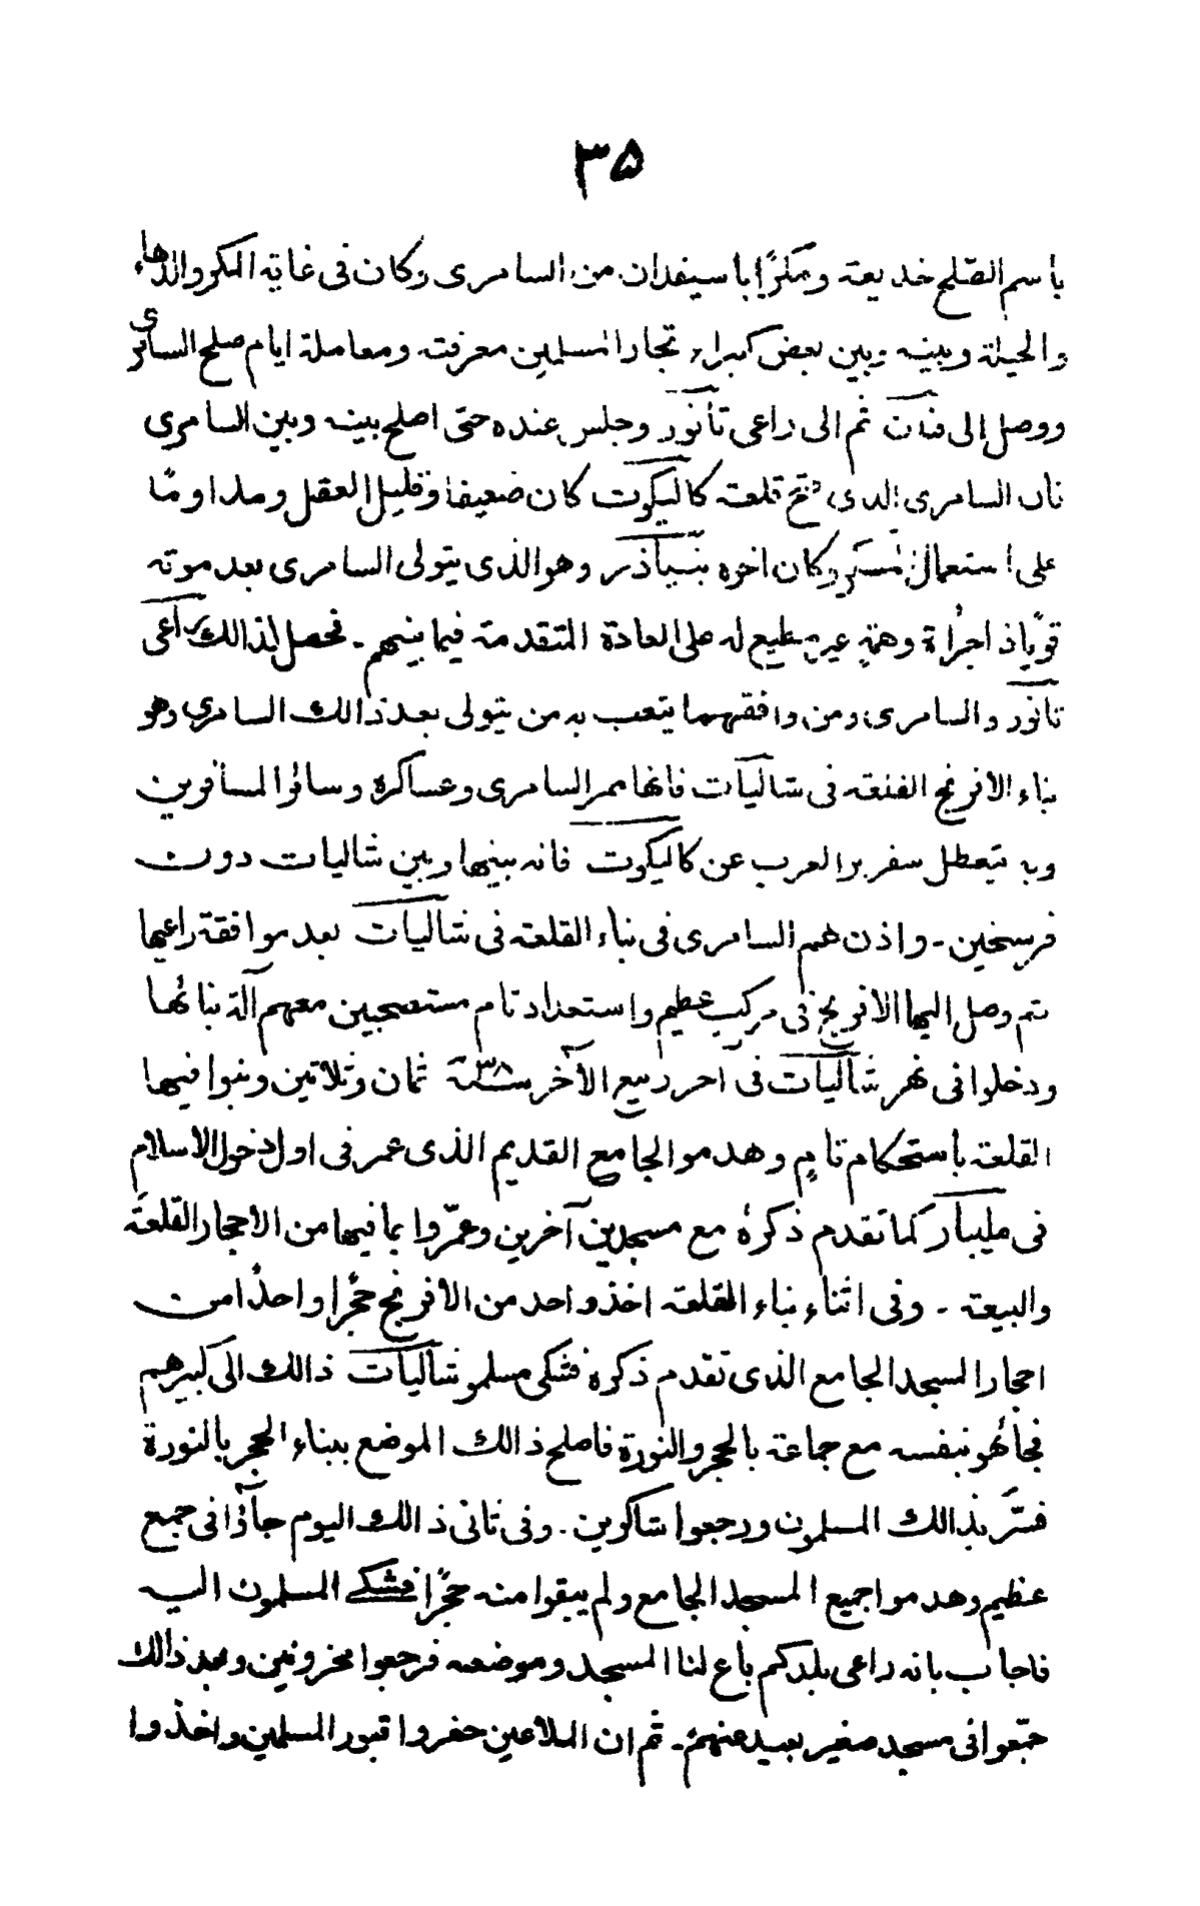 ٣٥
باسم الصّلح خديعة ومكرًا باسيفدان من السامرى وكان فى غاية المكر والدهاء
والحيلة وبينه وبين بعض كبراء تجار المسلمين معرفة ومعاملة ايام صلح السامرى
ووصل الى فنان ثم الى راعى تانور وجلس عنده حتى اصلح بينه وبين السامرى
فان السامرى الذى فتح قلعة كاليكوت كان ضعيفا وقليل العقل ومداومًا
على استعمال المسكر وكان اخوه وهو الذى يتولى السامرى بعد موته
قويًا ذا جرأة وهمة غير مطيع له على العادة المتقدمة فيما بينهم ـ فحصل لذالك راعى
تانور والسامرى ومن وافقهما يتعب به من يتولى بعد ذالك السامرى وهو
بناء الافرنج القلعة فى شاليات فانها ممر السامرى وعساكره وسائر المسافرين
وبه يتعطل سفر بر العرب عن كاليكوت فانه بينها وبين شاليات دون
فرسخين ـ واذن لهم السامرى فى بناء القلعة فى شاليات بعد موافقة راعيها
ثم وصل اليها الافرنج فى مركب عظيم واستعداد تام مستصحبين معهم آلة بنائها
ودخلوا فى نهر شاليات فى آخر ربيع الآخر سنة ٣٨ ثمان وثلاثين وبنوا فيها
القلعة باستحكام تام وهدموا الجامع القديم الذى عمر فى اول دخول الاسلام
فى مليبار كما تقدم ذكره مع مسجدين آخرين وعمّروا بما فيها من الاحجار القلعة
والبيعة ـ وفى اثناء بناء القلعة اخذ واحد من الافرنج حجرًا واحدًا من
احجار المسجد الجامع الذى تقدم ذكره فشكى مسلمو شاليات ذالك الى كبيرهم
فجائهو بنفسه مع جماعة بالحجر والنورة فاصلح ذالك الموضع ببناء الحجر بالنورة
فسّر بذالك المسلمون ورجعوا شاكرين ـ وفى ثانى ذالك اليوم جاؤا فى جمع
عظيم وهدموا جميع المسجد الجامع ولم يبقوا منه حجرًا فشكى المسلمون اليه
فاجاب بانه راعى بلدكم باع لنا المسجد وموضعه فرجعوا محزونين وبعد ذالك
جمّعوا فى مسجد صغير بعيد عنهم ـ ثم ان الملاعين حفروا قبور المسلمين واخذوا